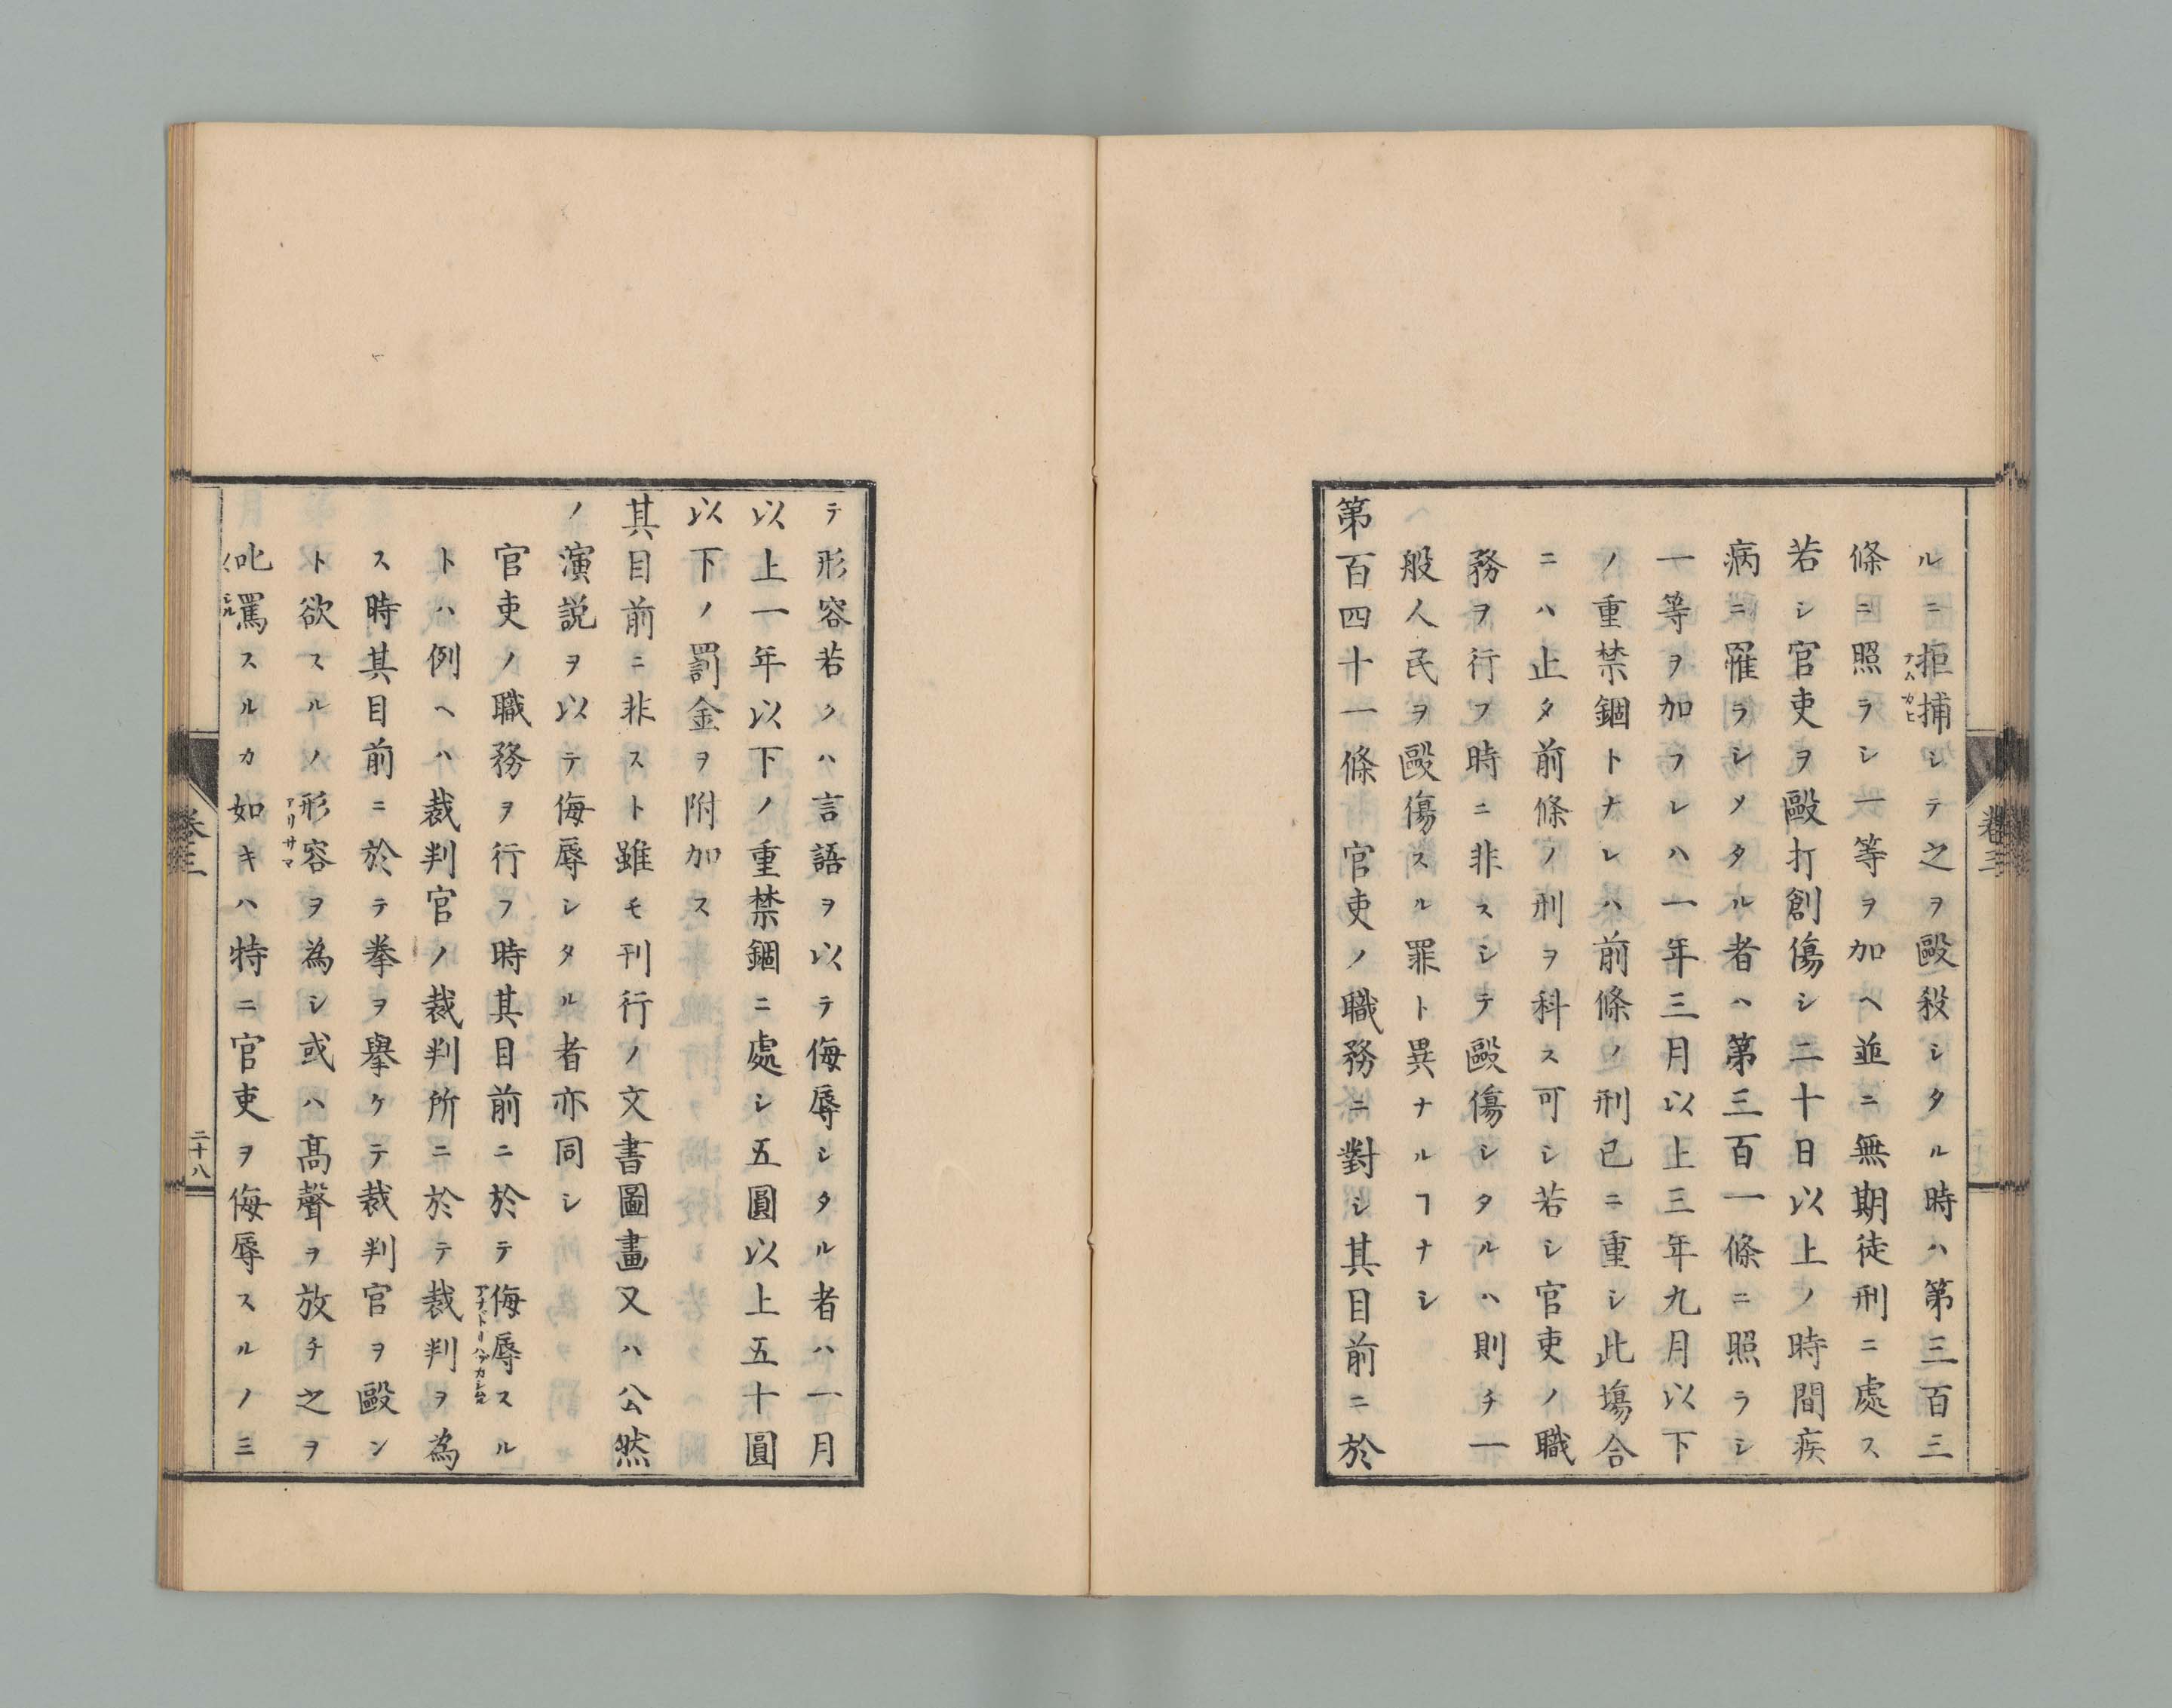 ルニ拒捕シテ之ヲ毆殺シタル時ハ第三百三
條ニ照ラシ一等ヲ加ヘ並ニ無期徒刑ニ處ス
若シ官吏ヲ毆打創傷シ二十日以上ノ時間疾
病ニ罹ラシメタル者ハ第三百一條ニ照ラシ
一等ヲ加フレハ一年三月以上三年九月以下
ノ重禁錮トナレハ前條ノ刑已ニ重シ此塲合
ニハ止タ前條ノ刑ヲ科ス可シ若シ官吏ノ職
務ヲ行フ時ニ非スシテ毆傷シタルハ則チ一
般人民ヲ毆傷スル罪ト異ナルヿナシ
第百四十一條 官吏ノ職務ニ對シ其目前ニ於
卷三
テ形容若クハ言語ヲ以テ侮辱シタル者ハ一月
以上一年以下ノ重禁錮ニ處シ五圓以上五十圓
以下ノ罰金ヲ附加ス
其目前ニ非スト雖モ刊行ノ文書圖畫又ハ公然
ノ演説ヲ以テ侮辱シタル者亦同シ
官吏ノ職務ヲ行フ時其目前ニ於テ侮辱スル
トハ例ヘハ裁判官ノ裁判所ニ於テ裁判ヲ為
ス時其目前ニ於テ拳ヲ擧ケテ裁判官ヲ毆ン
ト欲スルノ形容ヲ為シ或ハ髙聲ヲ放チ之ヲ
アリサマ
叱罵スルカ如キハ特ニ官吏ヲ侮辱スルノ三
卷三
二十八